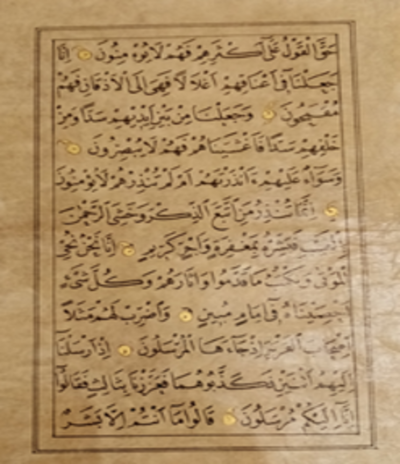 حَقَّ الْقَوْلُ عَلَى أَكْثَرِهِمْ فَهُمْ لَا يُؤْمِنُونَ إِنَّا
جَعَلْنَا فِي أَعْنَاقِهِمْ أَغْلَالًا فَهِيَ إِلَى الْأَذْقَانِ فَهُمْ
مُقْمَحُونَ وَجَعَلْنَا مِنْ بَيْنِ أَيْدِيهِمْ سَدًّا وَمِنْ
خَلْفِهِمْ سَدًّا فَأَغْشَيْنَاهُمْ فَهُمْ لَا يُبْصِرُونَ
وَسَوَاءٌ عَلَيْهِمْ ءَأَنْذَرْتَهُمْ أَمْ لَمْ تُنْذِرْهُمْ لَا يُؤْمِنُونَ
إِنَّمَا تُنْذِرُ مَنِ اتَّبَعَ الذِّكْرَ وَخَشِيَ الرَّحْمَنَ
بِالْغَيْبِ فَبَشِّرْهُ بِمَغْفِرَةٍ وَأَجْرٍ كَرِيمٍ إِنَّا نَحْنُ نُحْيِ
الْمَوْتَى وَنَكْتُبُ مَا قَدَّمُوا وَآثَارَهُمْ وَكُلَّ شَيْءٍ
أَحْصَيْنَاهُ فِي إِمَامٍ مُبِينٍ وَاضْرِبْ لَهُمْ مَثَلًا
أَصْحَابَ الْقَرْيَةِ إِذْ جَاءَهَا الْمُرْسَلُونَ إِذْ أَرْسَلْنَا
إِلَيْهِمُ اثْنَيْنِ فَكَذَّبُوهُمَا فَعَزَّزْنَا بِثَالِثٍ فَقَالُوا
إِنَّا إِلَيْكُمْ مُرْسَلُونَ قَالُوا مَا أَنْتُمْ إِلَّا بَشَرٌ